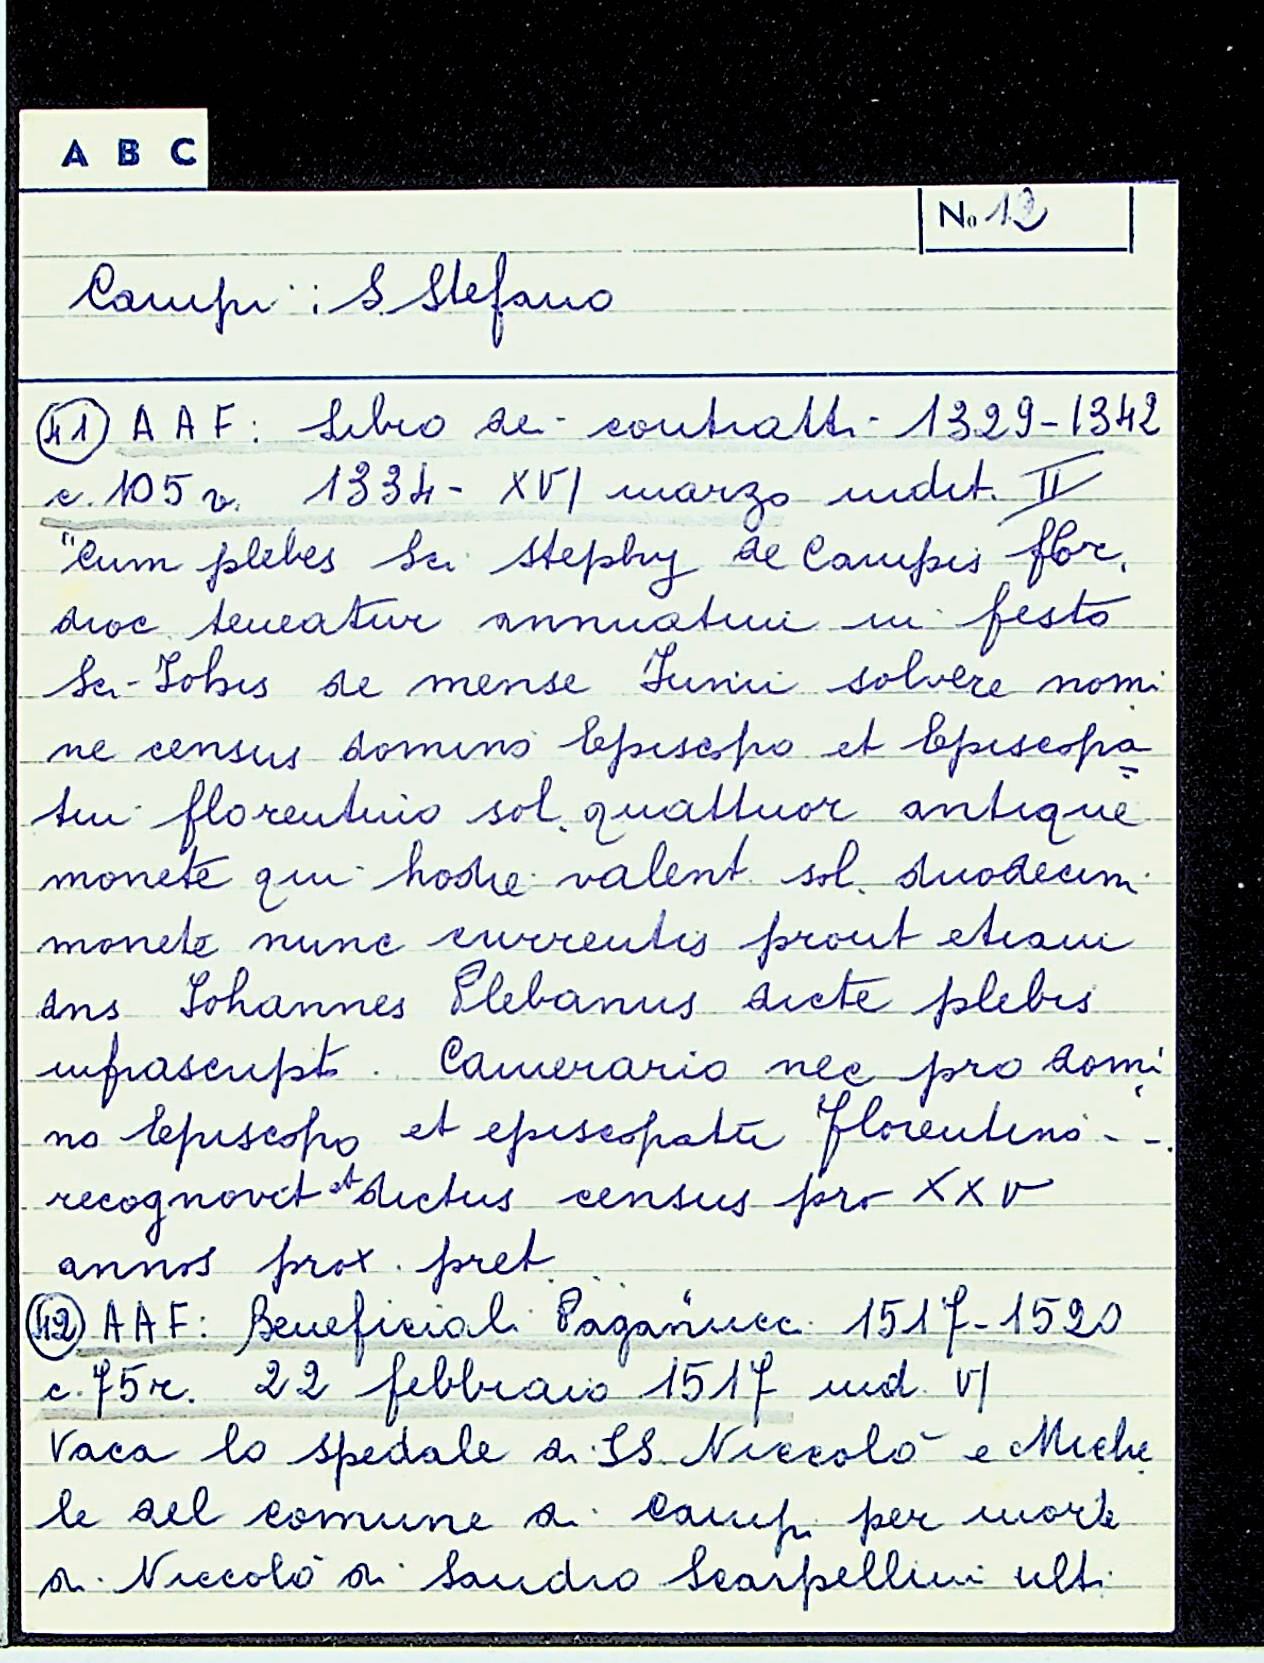 A B C
No 12
Campi: S. Stefano
41) A A F: Libro dei contratti 1329-1342
c. 105 v. 1334- XVI marzo indit. II
"Cum plebes Sci Stephy de Campis flor.
dioc. teneatur annuatim in festo
Sci Johis de mense Junii solvere nomi
ne census domino Episcopo et Episcopa=
tui florentino sol. quattuor antique
monete qui hodie valent sol. duodecim
monete nunc currentis prout etiam
dns Johannes Plebanus dicte plebis
infrascript. Camerario nec pro domi
no Episcopo et episcopatu Florentino - -.
recognovit et dictus census pro XXV
annos prox. pret. ...
42) A A F: Beneficiali Paganucci 1517-1520
c. 75r. 22 febbraio 1517 ind. VI
Vaca lo spedale di SS. Niccolò e Miche
le del comune di Campi per morte
di Niccolò di Sandro Scarpellini ulti